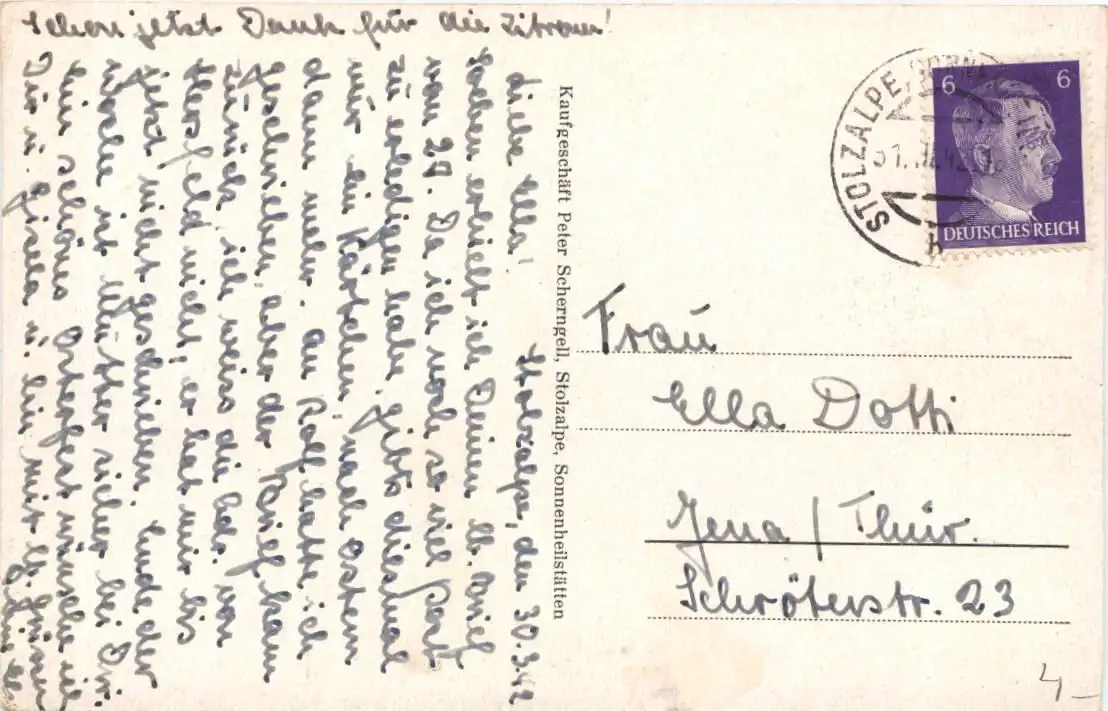 Schon jetzt Dank für die Zitronen!
Stolzalpe, den 30.3.42
Liebe Ella!
Soeben erhielt ich Deinen lb. Brief
von 27. Da ich noch so viel Post
zu erledigen habe, gibts diesmal
nur ein Kärtchen, nach Ostern
dann mehr. An Rolf hatte ich
geschrieben, aber der Brief kam
zurück, ich weiss die Adr. von
Hersfeld nicht, er hat mir bis
jetzt nicht geschrieben. Ende der
Woche ist Mutter sicher bei Dir.
Ein schönes Osterfest wünsche ich
Dir u. Gisela u. bin mit hz. Grüssen
Kaufgeschäft Peter Scherngell, Stolzalpe, Sonnenheilstätten
STOLZALPE
6 6
DEUTSCHES REICH
Frau
Ella Dotti
Jena / Thür.
Schröterstr. 23
4-